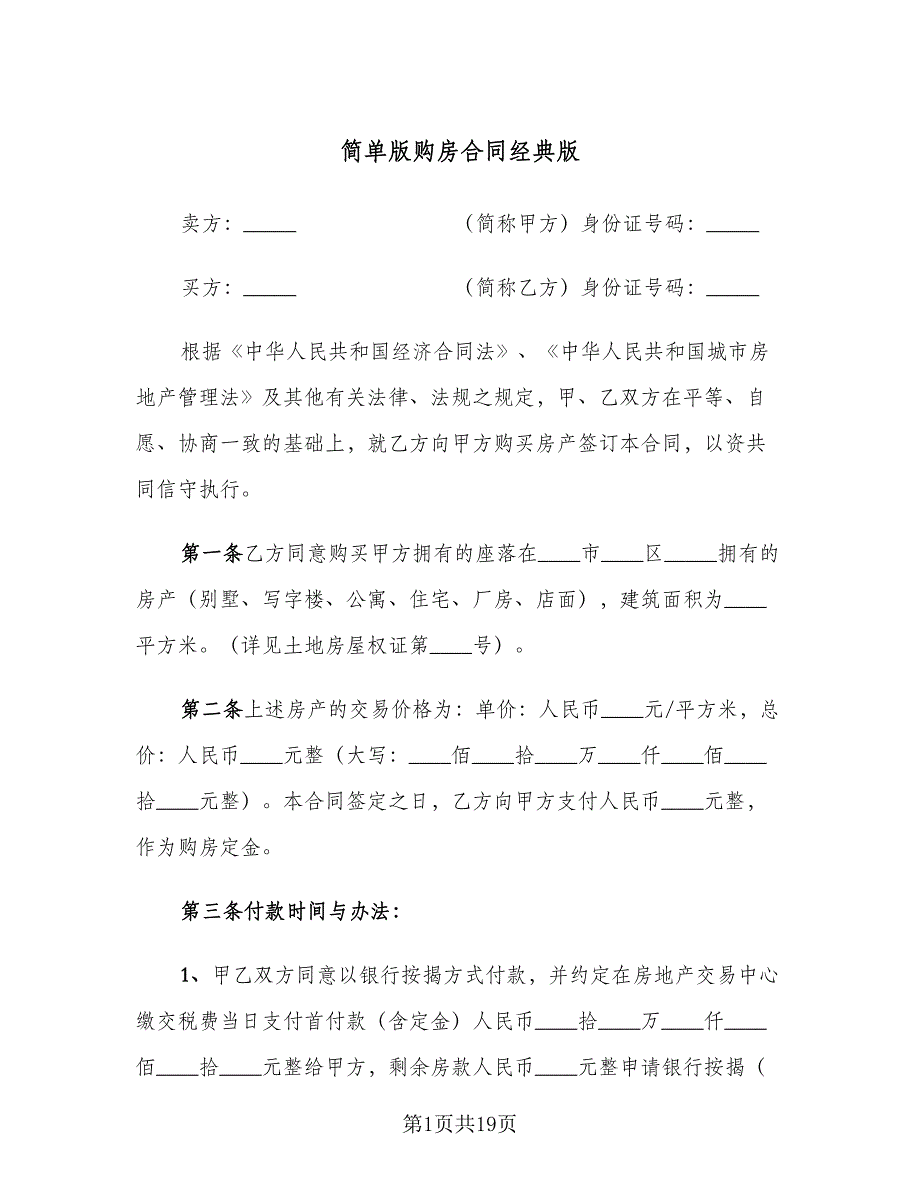 简单版购房合同经典版
卖方：_____ （简称甲方）身份证号码：_____
买方：_____ （简称乙方）身份证号码：_____
根据《中华人民共和国经济合同法》、《中华人民共和国城市房
地产管理法》及其他有关法律、法规之规定，甲、乙双方在平等、自
愿、协商一致的基础上，就乙方向甲方购买房产签订本合同，以资共
同信守执行。
第一条乙方同意购买甲方拥有的座落在____市____区_____拥有的
房产（别墅、写字楼、公寓、住宅、厂房、店面），建筑面积为____
平方米。（详见土地房屋权证第____号）。
第二条上述房产的交易价格为：单价：人民币____元/平方米，总
价：人民币____元整（大写：____佰____拾____万____仟____佰____
拾____元整）。本合同签定之日，乙方向甲方支付人民币____元整，
作为购房定金。
第三条付款时间与办法：
1、甲乙双方同意以银行按揭方式付款，并约定在房地产交易中心
缴交税费当日支付首付款（含定金）人民币____拾____万____仟____
佰____拾____元整给甲方，剩余房款人民币____元整申请银行按揭（
第1页共19页